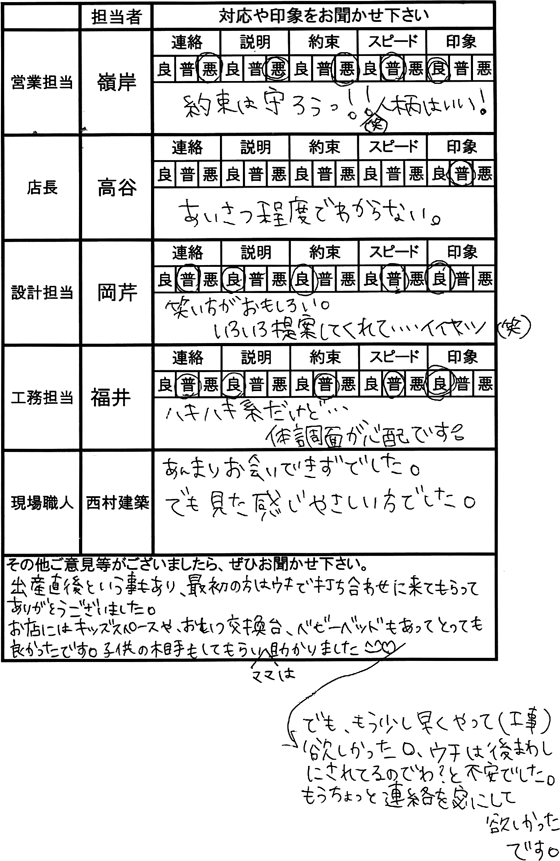 担当者 対応や印象をお聞かせ下さい
営業担当 嶺岸
連絡 説明 約束 スピード 印象
良 普 悪 良 普 悪 良 普 悪 良 普 悪 良 普 悪
約束は守ろうっ!!人柄はいい!
(笑)
店長 高谷
連絡 説明 約束 スピード 印象
良 普 悪 良 普 悪 良 普 悪 良 普 悪 良 普 悪
あいさつ程度でわからない。
設計担当 岡芹
連絡 説明 約束 スピード 印象
良 普 悪 良 普 悪 良 普 悪 良 普 悪 良 普 悪
笑い方がおもしろい。
いろいろ提案してくれて・・・・イイヤツ(笑)
工務担当 福井
連絡 説明 約束 スピード 印象
良 普 悪 良 普 悪 良 普 悪 良 普 悪 良 普 悪
ハキハキ系だけど・・・
体調面が心配です。
現場職人 西村建築
あんまりお会いできずでした。
でも見た感じやさしい方でした。
その他ご意見等がございましたら、ぜひお聞かせ下さい。
出産直後という事もあり、最初の方はウチで打ち合わせに来てもらって
ありがとうございました。
お店にはキッズスペースや、おむつ交換台、ベビーベッドもあってとっても
良かったです。子供の相手もしてもらい助かりました
ママは
でも、もう少し早くやって(工事)
欲しかった。ウチは後まわし
にされてるのでわ?と不安でした。
もうちょっと連絡を密にして
欲しかった
です。